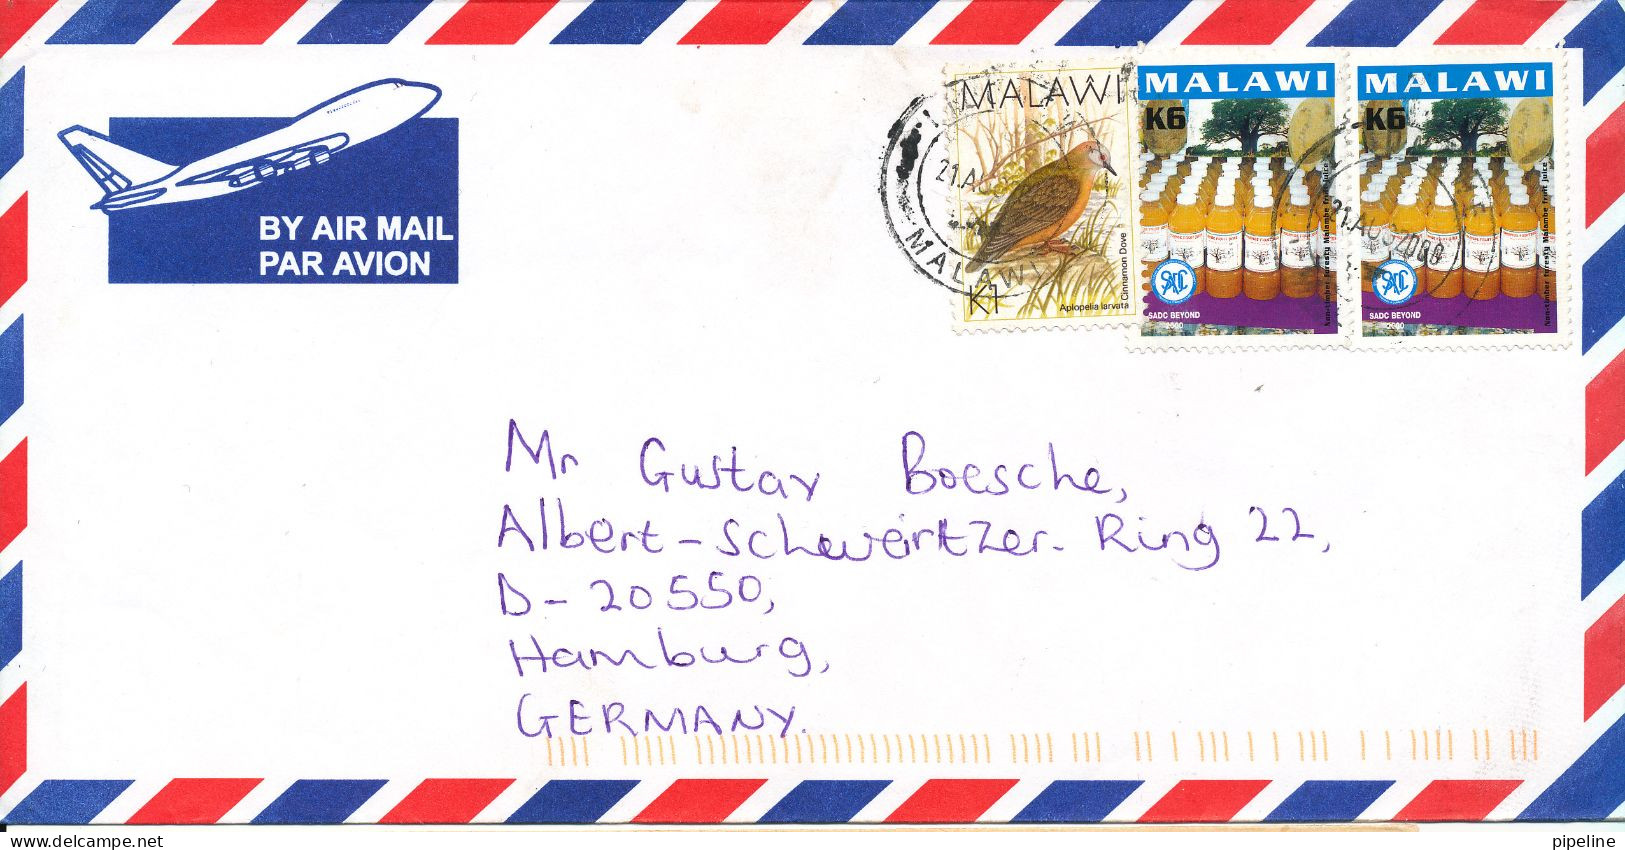 BY AIR MAIL
PAR AVION
MALAWI
21.A
MALAWI
K1
Aplopelia larvata
Cinnamon Dove
MALAWI
K6
Non-timber foresty Malambe fruit juice
SADC BEYOND
2000
MALAWI
K6
Non-timber foresty Malambe fruit juice
SADC BEYOND
2000
21.AUG 2000
Mr Gustav Boesche,
Albert-Schweirtzer-Ring 22,
D-20550,
Hamburg,
GERMANY.
delcampe.net
pipeline